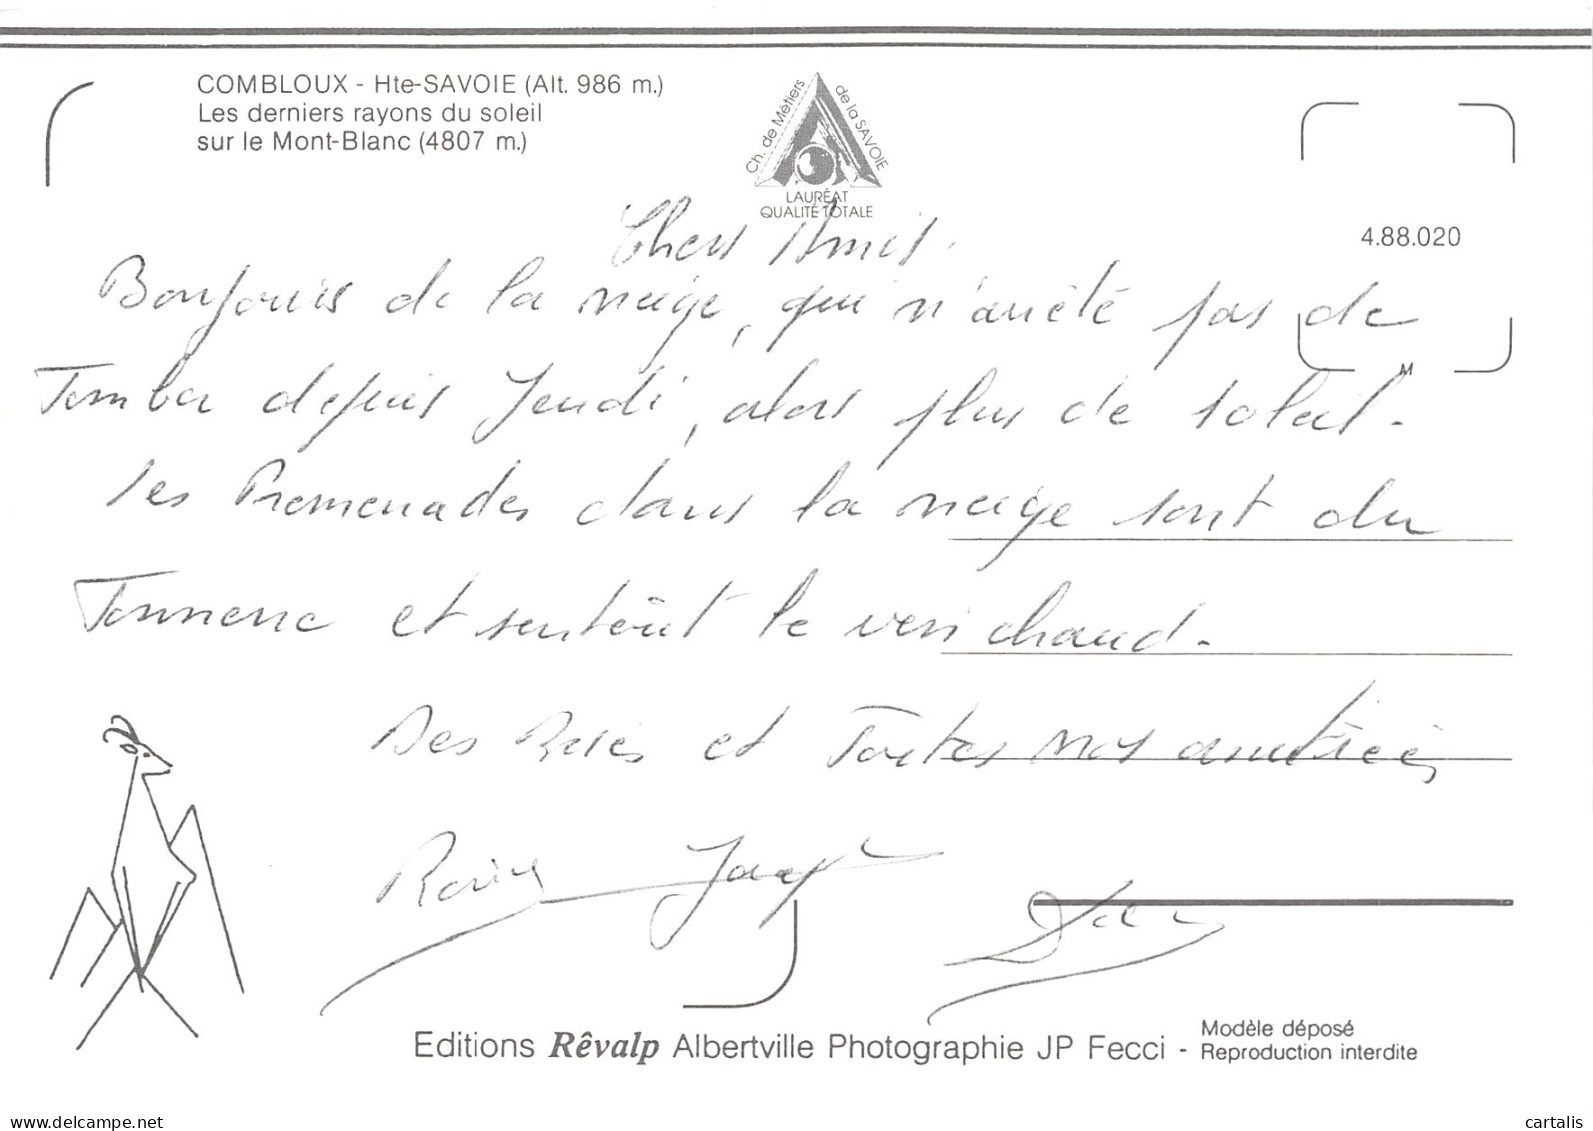 COMBLOUX - Hte-SAVOIE (Alt. 986 m.)
Les derniers rayons du soleil
sur le Mont-Blanc (4807 m.)
Ch. de Métiers de la SAVOIE
LAURÉAT
QUALITÉ TOTALE
4.88.020
M
Chers Amis.
Bonjours de la neige, qui n'arrêté pas de
Tomber depuis Jeudi, alors plus de soleil.
les Promenades dans la neige sont du
Tonnerre et surtout le vin chaud.
Des Bises et Toutes nos amitiées
Editions Rêvalp Albertville Photographie JP Fecci -
Modèle déposé
Reproduction interdite
www.delcampe.net
cartalis